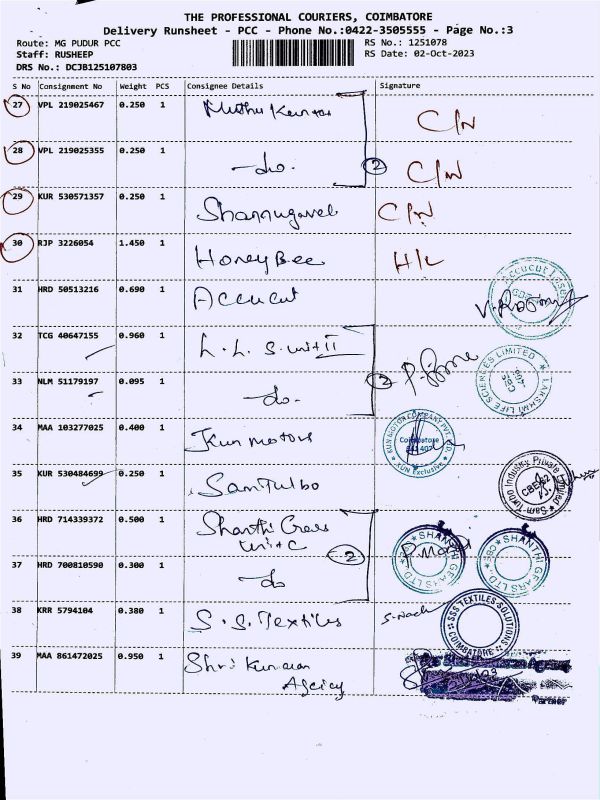 THE PROFESSIONAL COURIERS, COIMBATORE
Delivery Runsheet - PCC - Phone No.:0422-3505555 - Page No.:3
Route: MG PUDUR PCC
RS No.: 1251078
Staff: RUSHEEP
RS Date: 02-Oct-2023
DRS No.: DCJB125107803
S No Consignment No Weight PCS Consignee Details Signature
27 VPL 219025467 0.250 1 Muthu Kumar C/N
28 VPL 219025355 0.250 1 -do- 2 C/N
29 KUR 530571357 0.250 1 Shanmugavel C/N
30 RJP 3226054 1.450 1 HoneyBee H/L
31 HRD 50513216 0.690 1 Accucut
32 TCG 40647155 0.960 1 L.L.S. unit II
33 NLM 51179197 0.095 1 -do- 2
LAKSHMI LIFE SCIENCES LIMITED
34 MAA 103277025 0.400 1 Kun motors
KUN MOTOR COMPANY PVT. LTD.
Coimbatore
641 407
KUN Exclusive
35 KUR 530484699 0.250 1 Samturbo
Sam Turbo Industry Private Limited
36 HRD 714339372 0.500 1 Shanthi Gears
Unit C
SHANTHI GEARS LTD.
SHANTHI GEARS LTD.
37 HRD 700810590 0.300 1 -do 2
38 KRR 5794104 0.380 1 S.S. Textiles
SSS TEXTILES SOLUTIONS
COIMBATORE
39 MAA 861472025 0.950 1 Shri Kumaran
Agency
Partner